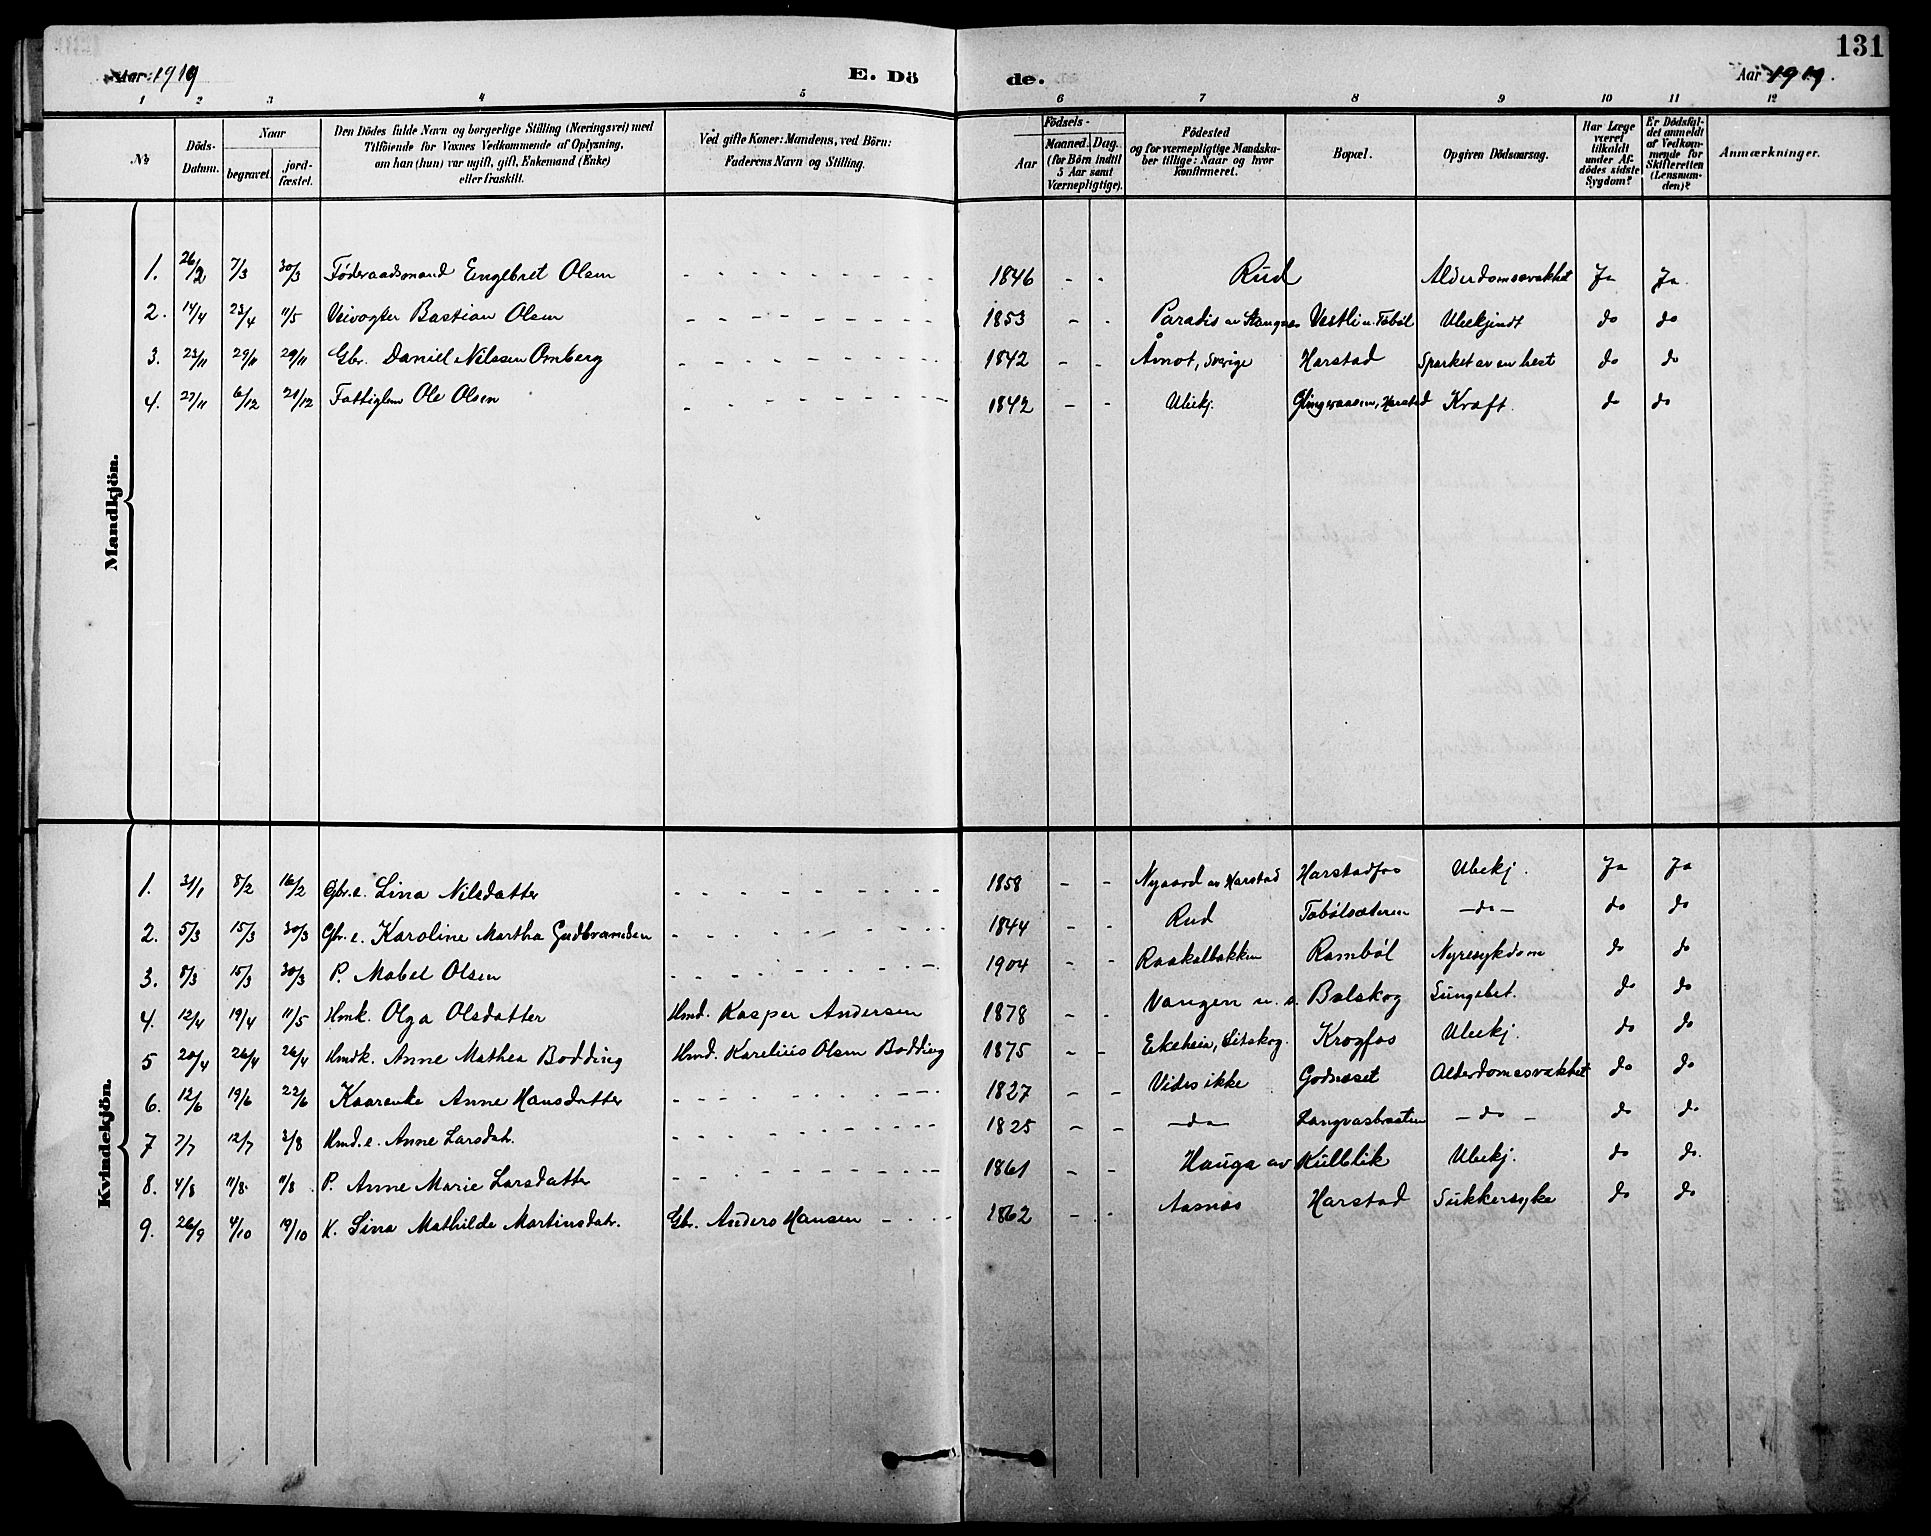 131
Aar 1919
E. Döde.
Aar 1919.
1 2 3 4 5 6 7 8 9 10 11 12
No
Döds-Datum.
Naar
begravet.
jordfæstet.
Den Dödes fulde Navn og borgerlige Stilling (Næringsvei) med
Tilföiende for Voxnes Vedkommende af Oplysning,
om han (hun) var ugift, gift, Enkemand (Enke)
eller fraskilt.
Ved gifte Koner: Mandens, ved Börn:
Faderens Navn og Stilling.
Födsels-
Aar
Maaned.
Dag.
(for Börn indtil
5 Aar samt
Værnepligtige).
Födested
og for værnepligtige Mandsku-
ber tillige: Naar og hvor
konfirmeret.
Bopæl.
Opgiven Dödsaarsag.
Har Læge
været
tilkaldt
under Af-
dödes sidste
Sygdom?
Er Dödsfal-
det anmeldt
af Vedkom-
mende for
Skifteretten
(Lensman-
den)?
Anmærkninger.
Mandkjön.
1. 26/2 7/3 30/3 Föderaadsmand Engebret Olsen - - - 1846 - - Rud Alderdomssvakhet Ja Ja.
2. 14/4 23/4 11/5 Veivogter Bastian Olsen - - - 1853 - - Paradis av Stangnes Vestli u. Tobøl Ubekjendt do do
3. 23/11 29/11 29/11 Gbr. Daniel Nilssen Omberg - - - 1842 - - Åmot, Sverige Harstad Sparket av en hest do do
4. 27/11 6/12 21/12 Fattiglem Ole Olsen - - - 1842 - - Ubekj. Harstad Kræft. do do
Kvindekjön.
1. 31/1 8/2 16/2 Gbr.e. Lina Nilsdatter - - - 1858 - - Nygaard av Harstad Harstadfos Ubekj. Ja Ja
2. 5/3 15/3 30/3 Gbr.e. Karoline Martha Gudbrandsen - - - 1844 - - Rud Tobölsæteren - do - do do
3. 8/3 15/3 30/3 P. Mabel Olsen - - - 1904 - - Raakalbakken Rambøl Nyresykdom do do
4. 12/4 19/4 11/5 Hmk. Olga Olsdatter Hmd. Kasper Andersen 1878 - - Vangen u. Bolskog Lungebet. do do
5 20/4 26/4 26/4 Hmdk. Anne Mathea Bodding Hmd. Karelius Olsen Bodding 1875 - - Ekeheia, Eitskog. Krogfos Ubekj. do do
6. 12/6 19/6 22/6 Kaarenke Anne Hansdatter - - - 1827 - - Vides ikke Godnæset Alderdomssvakhet do do
7 7/7 12/7 3/8 Hmd.e. Anne Larsdatr. - - - 1825 - - - do - Langvasbraaten - do - do do
8. 4/8 11/8 11/8 P. Anne Marie Larsdatter - - - 1861 - - Hauga av Kulblik Ubekj. do do.
9. 26/9 4/10 19/10 K. Lina Mathilde Martinsdatr. Gbr. Anders Hansen - - - 1862 - - Aasnes Harstad Sukkersyke do do